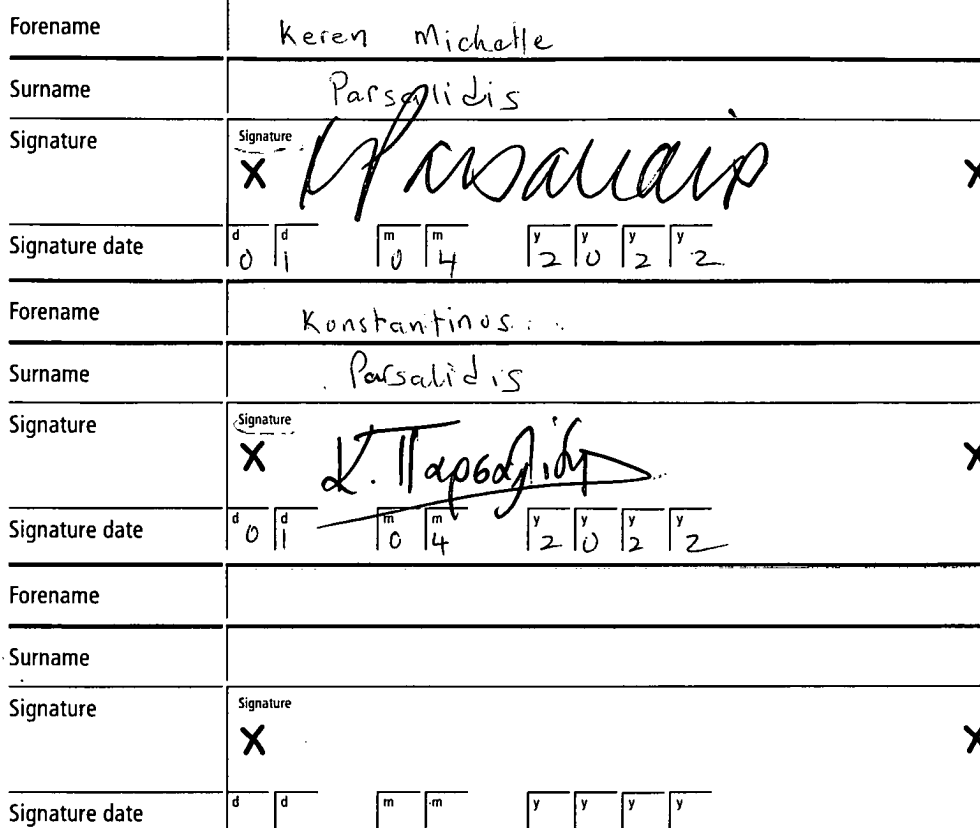 Forename Keren Michelle
Surname Parsalidis
Signature Signature X X
Signature date d 0 d 1 m 0 m 4 y 2 y 0 y 2 y 2
Forename Konstantinos
Surname Parsalidis
Signature Signature X Κ. Παρσαλίδης X
Signature date d 0 d 1 m 0 m 4 y 2 y 0 y 2 y 2
Forename
Surname
Signature Signature X X
Signature date d d m m y y y y